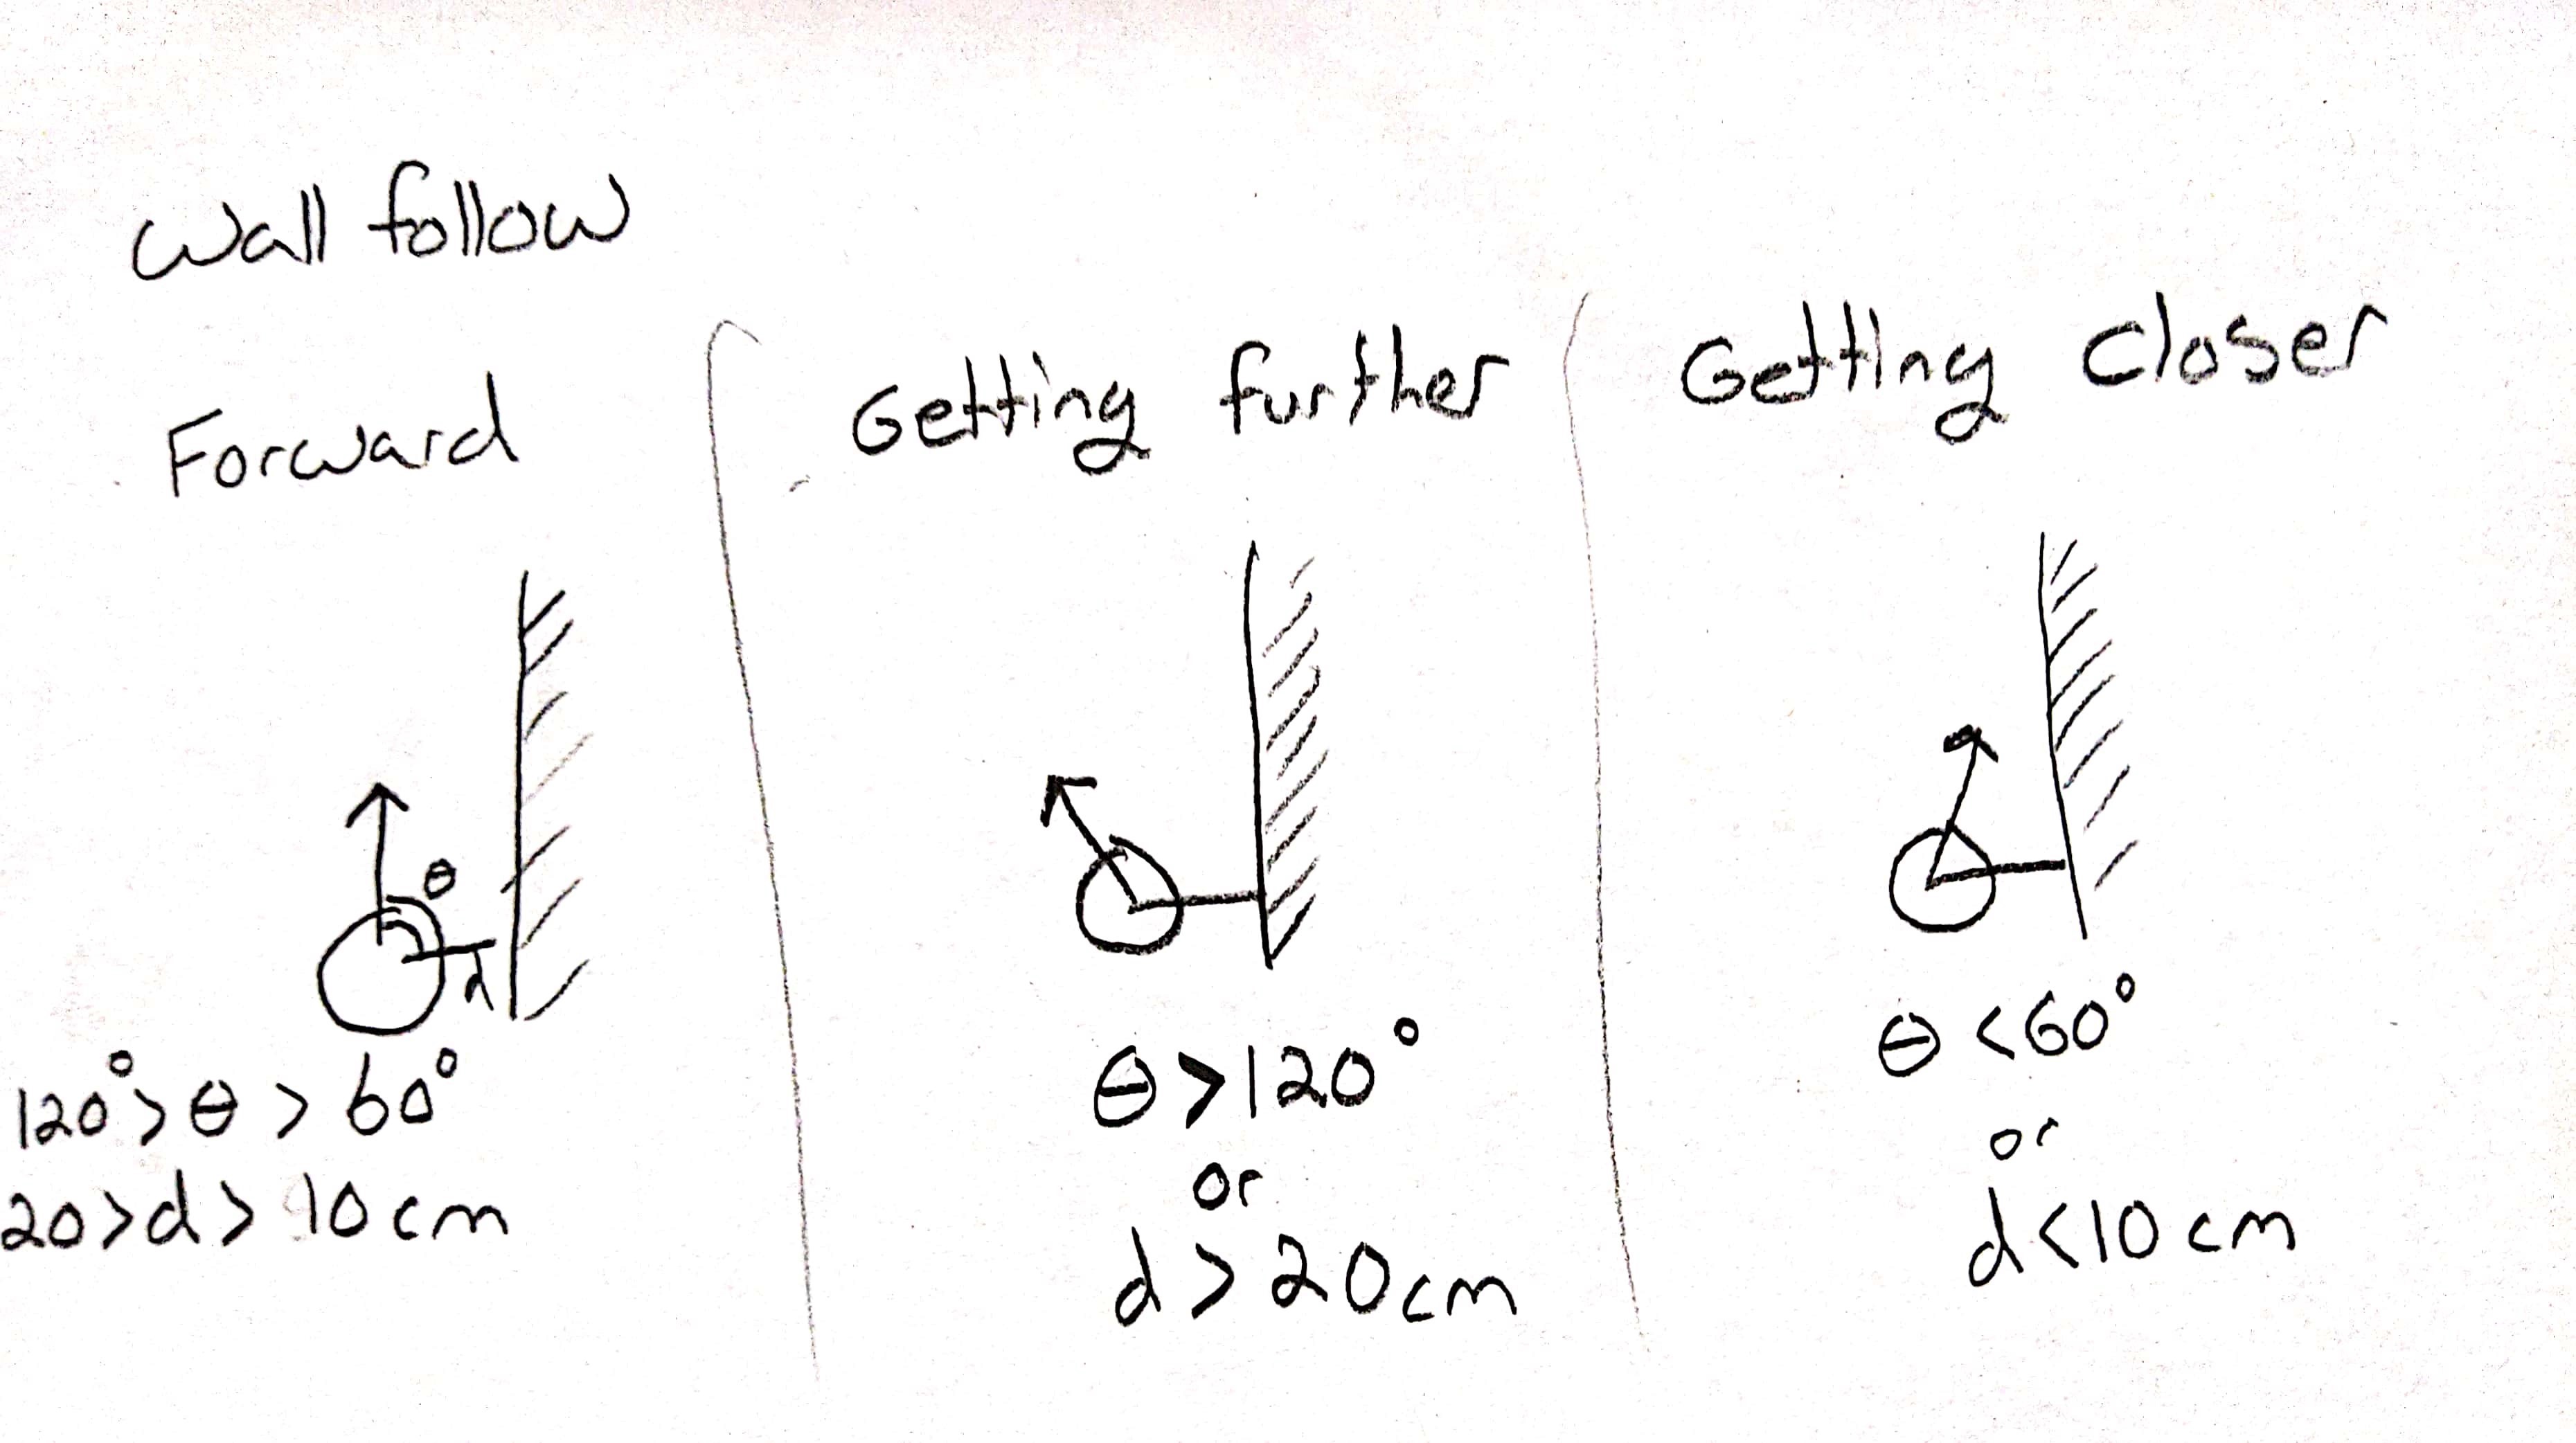 Wall follow
Forward
θ
d
120° > θ > 60°
20 > d > 10 cm
Getting further
θ > 120°
or
d > 20 cm
Getting closer
θ < 60°
or
d < 10 cm